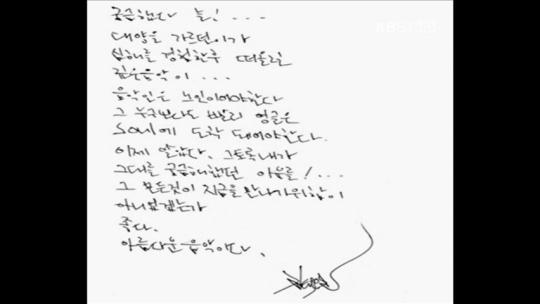 궁금했다 늘! . . .
대양을 가르던이가
심해를 경험한후 떠올릴
깊은음악이 . . .
음악인은 노인이어야한다
그 누구보다도 빨리 영글은
Soul에 도착 돼어야한다.
이제 알았다. 그토록내가
그대를 궁금해했던 이유를! . . .
그 모든것이 지금을 만나기위함이
아니었겠는가
좋다.
아름다운음악이다.
KBS